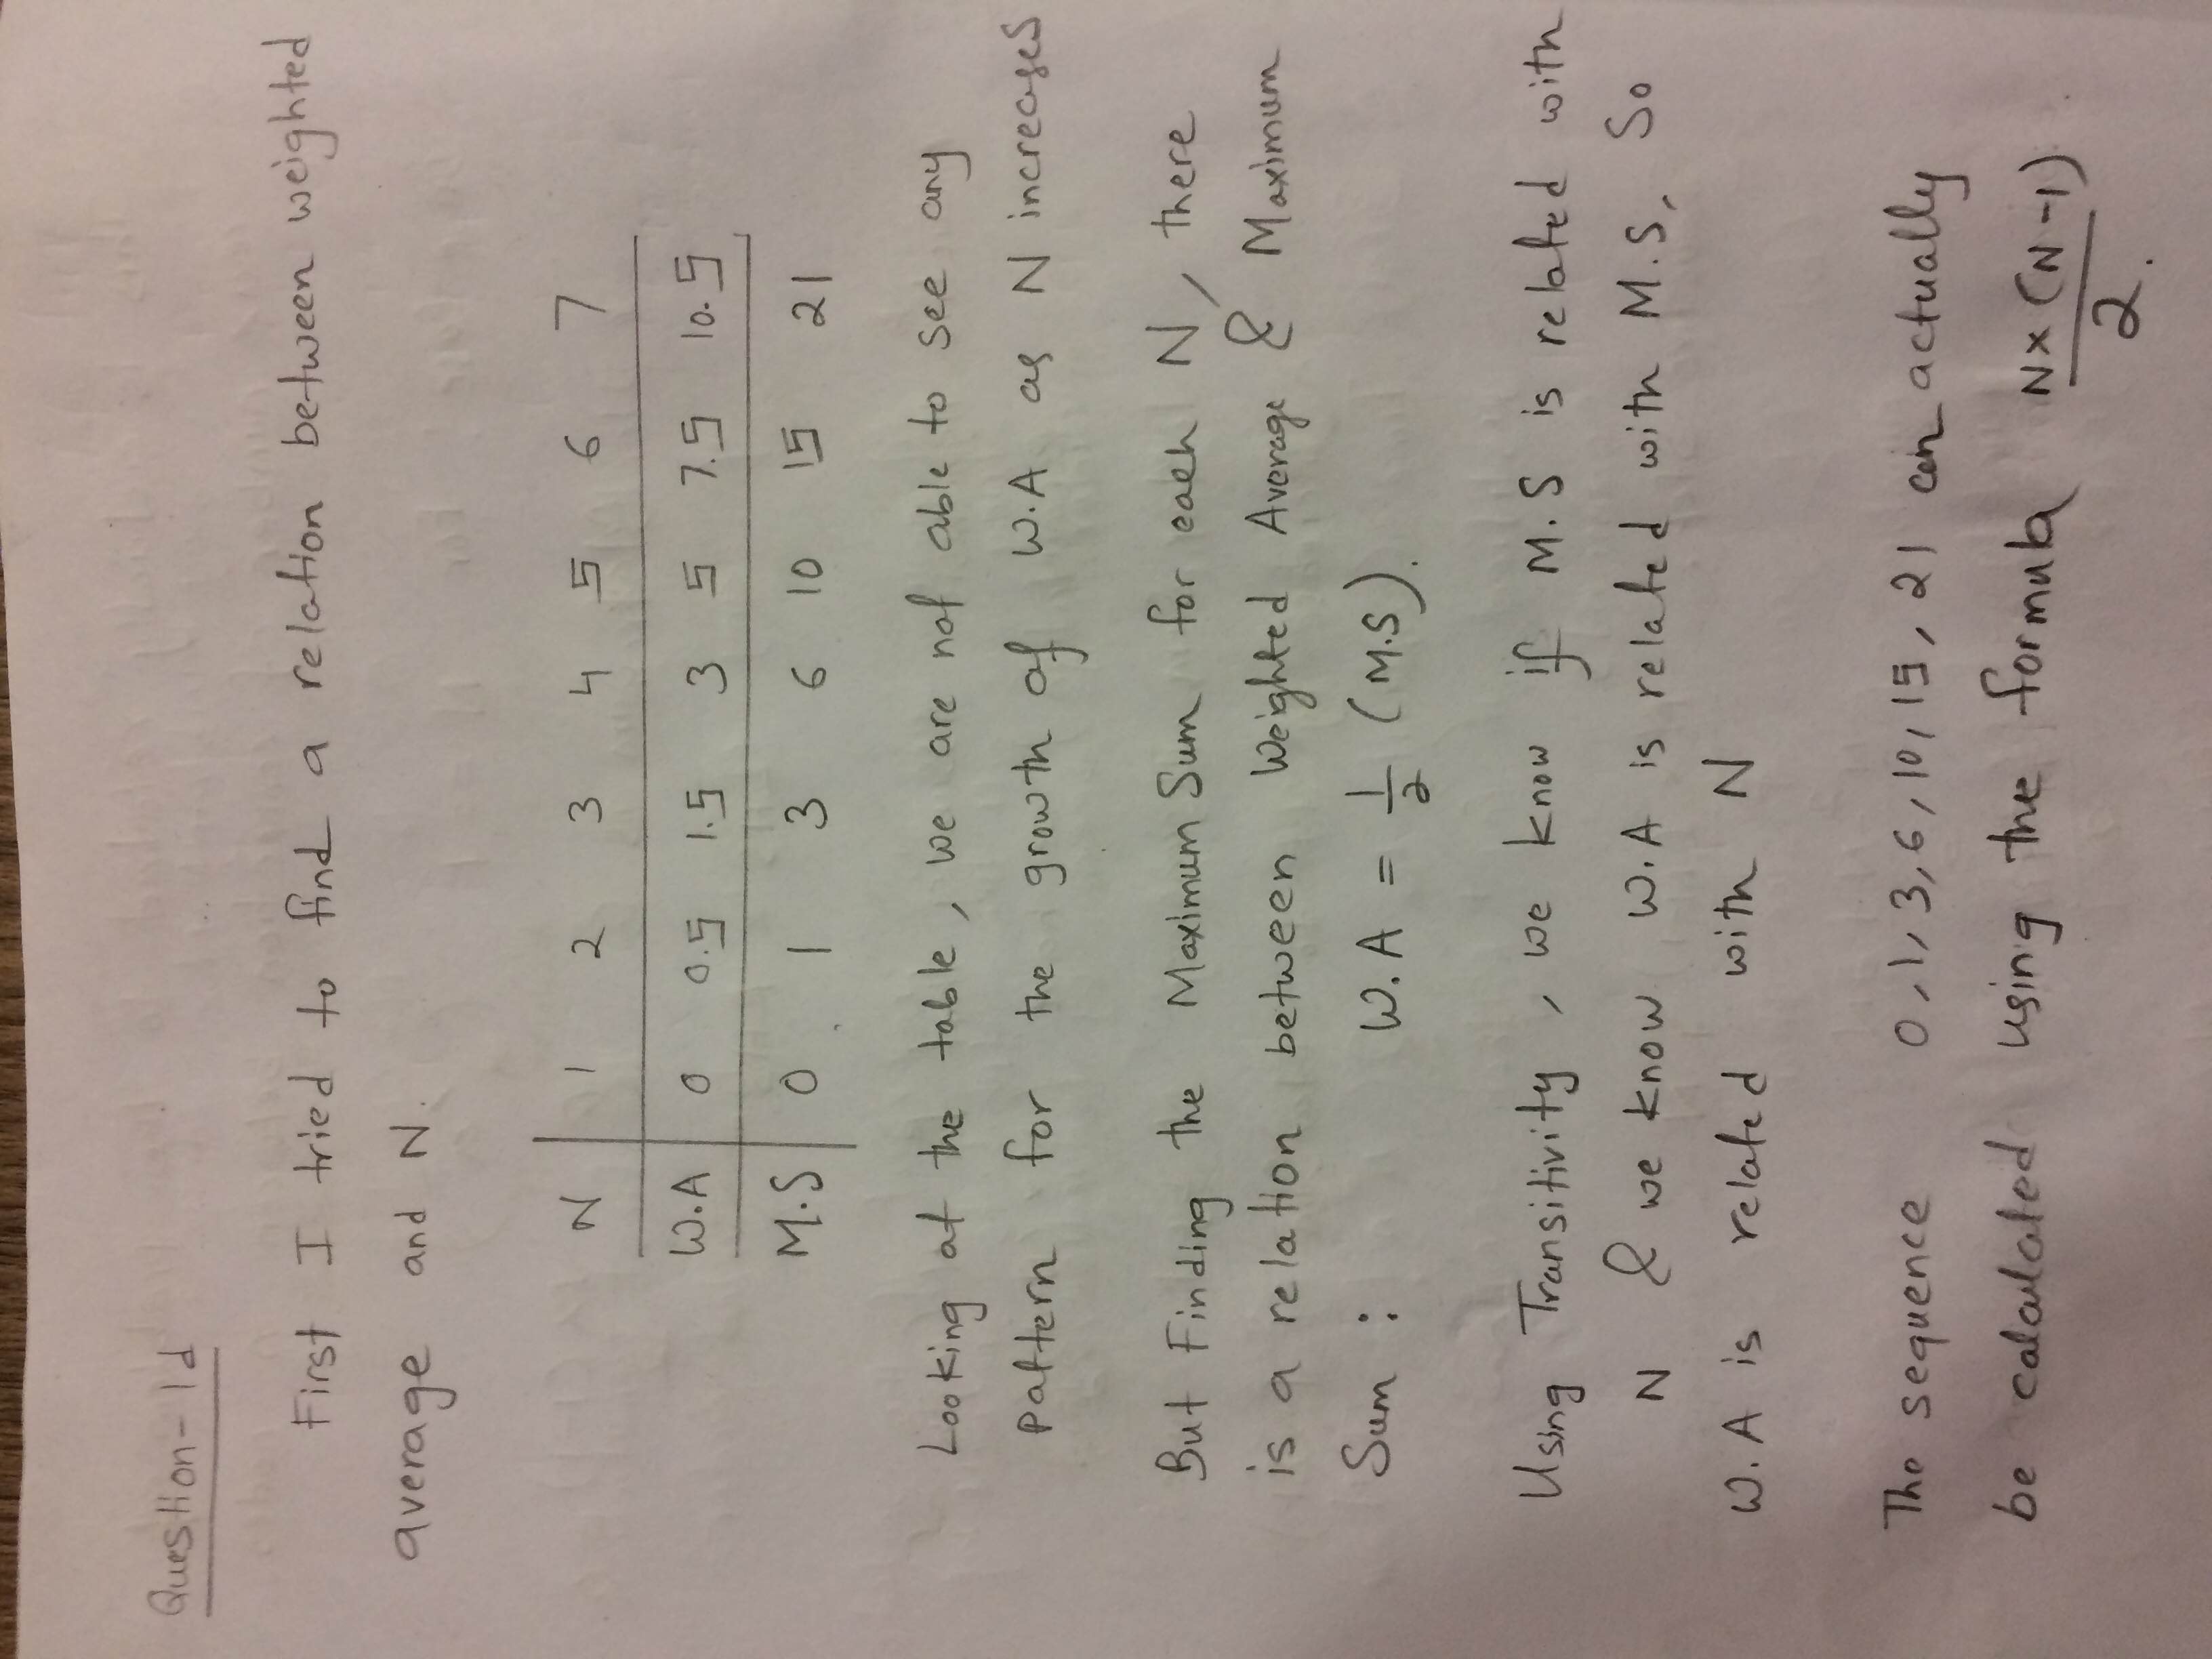 Question-1d
First I tried to find a relation between weighted
average and N.
N 1 2 3 4 5 6 7
W.A 0 0.5 1.5 3 5 7.5 10.5
M.S 0 1 3 6 10 15 21
Looking at the table, we are not able to see any
pattern for the growth of W.A as N increases
But Finding the Maximum Sum for each N, there
is a relation between Weighted Average & Maximum
Sum : W.A = 1/2 (M.S).
Using Transitivity, we know if M.S is related with
N & we know W.A is related with M.S, So
W.A is related with N
The sequence 0,1,3,6,10,15,21 can actually
be calculated using the formula N×(N-1)/2.